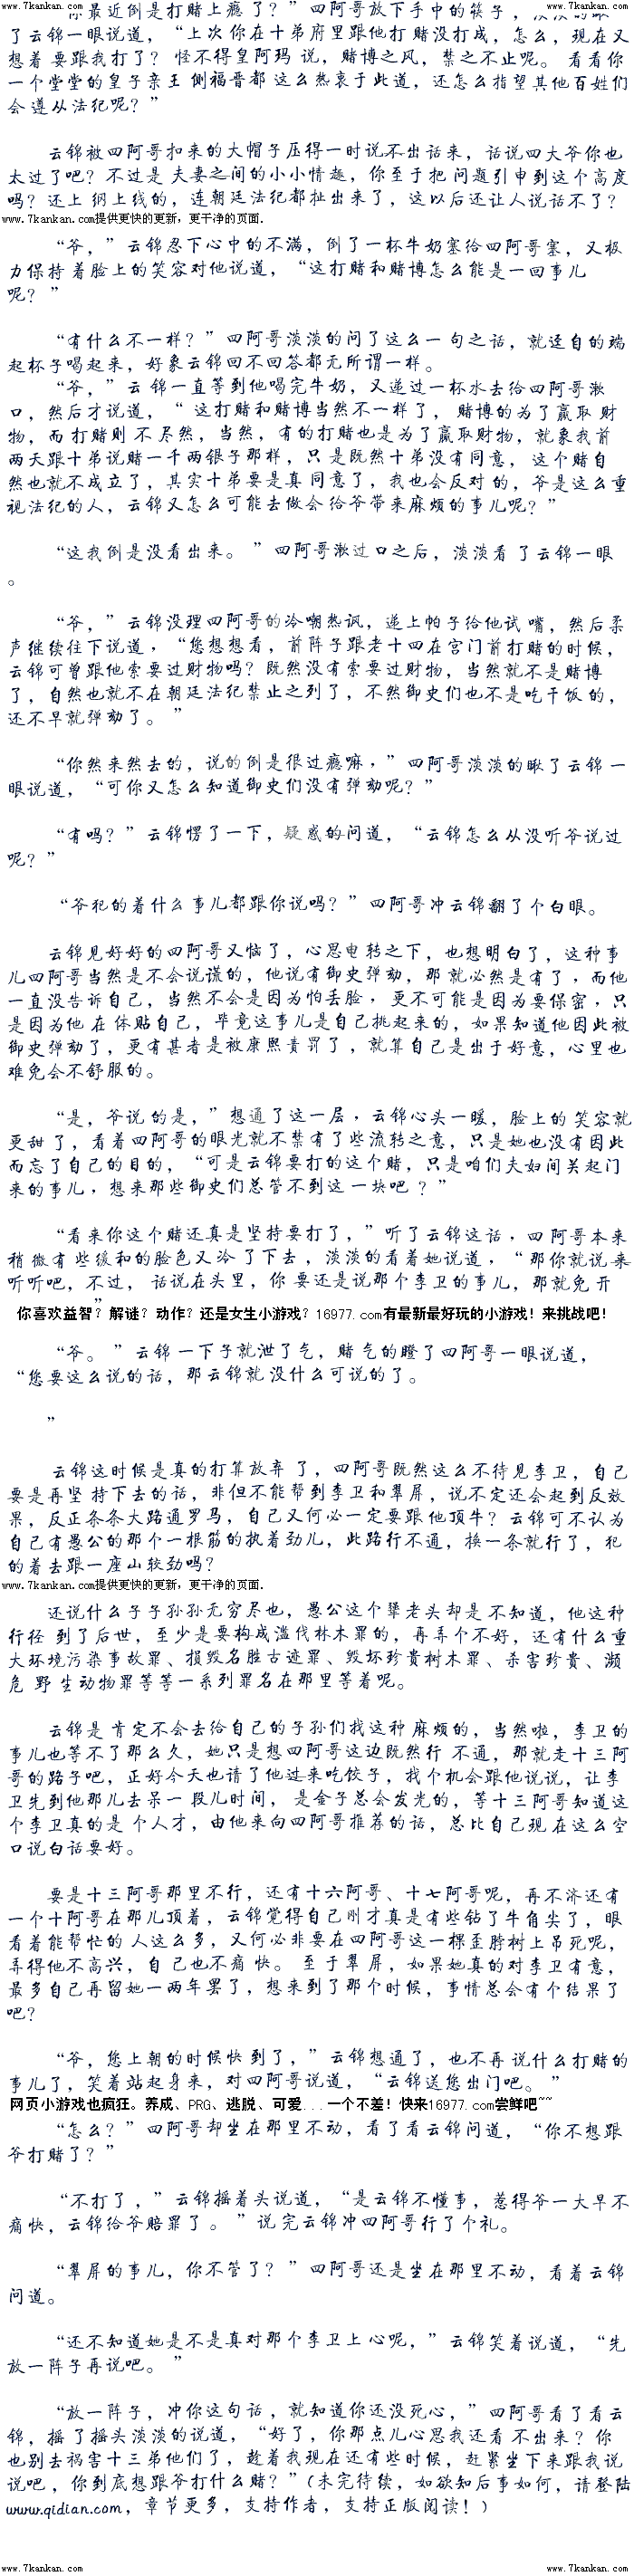 www.7kankan.com www.7kankan.com
你最近倒是打赌上瘾了？” 四阿哥放下手中的筷子，淡淡的瞅
了云锦一眼说道，“上次 你在十弟府里跟他打 赌没打成，怎么，现在又
想着 要跟我打了？ 怪不得皇阿玛 说，赌博之风，禁之不止呢。 看看你
一个堂堂的皇子亲王 侧福晋都 这么热衷于此道，还怎么指望其他百姓们
会 遵从法纪呢？”
云锦被四阿哥扣来的大帽子压得一时说不出话来，话说四大爷你也
太过了吧？不过是 夫妻之间的小小情趣，你至于把 问题引申到这个高度
吗？还上 纲上线的，连朝廷法纪都扯出来了，这以后还让人说话不了？
www.7kankan.com提供更快的更新，更干净的页面.
“爷，” 云锦忍下心中的不满，倒了一杯牛奶塞给四阿哥塞，又极
力保持 着脸上的笑容对他说道，“这打赌和赌博怎么能是一回事儿
呢？”
“有什么不一样？” 四阿哥淡淡的问了这么一 句之话，就迳自的端
起杯子喝起来，好象云锦回不回答都无所谓一样。
“爷，” 云 锦一直等到他喝完牛奶，又递过一杯水去给四阿哥漱
口，然后才说道，“ 这打赌和赌博当然不一样了， 赌博的为了赢取 财
物，而 打赌则 不 尽然，当然，有的打赌也是为了赢取财物，就象我前
两天跟十弟说赌一千两银子那样，只 是既然十弟没有同意， 这个赌自
然也就不成立了，其实十弟要是真 同意了，我也会反对 的，爷是这么重
视法纪的人，云锦又怎么可能去做会 给爷带来麻烦的事儿呢？”
“这我倒是没看出来。 ”四阿哥漱过口之后，淡淡看 了云锦一眼
。
“爷，” 云锦没理四阿哥的冷嘲热讽，递上帕子给他试 嘴，然后柔
声继续往下说道，“您想想看，前阵子跟老十四在宫门前打赌的时候，
云锦可曾跟他索要过财物吗？既然没有索要过财物，当然就不是赌博
了，自然也就不在朝廷法纪禁止之列了，不然御史们也不是吃干饭 的，
还不早就弹劾了。”
“你然来然去的，说的倒是很过瘾嘛，” 四阿哥淡淡的瞅了云锦 一
眼说道，“可你又怎么知道御史们没有弹劾呢？”
“有吗？” 云锦愣了一下，疑惑的问道，“云锦怎么从没听爷说过
呢？”
“爷犯的着什么 事儿都跟你说吗？” 四阿哥冲云锦翻了个白眼。
云锦见好好的四阿哥又恼了，心思电转之下，也想明白了，这种事
儿四阿哥当然是不会说谎的，他说有御史弹劾，那 就必然是有了，而他
一直没告诉自己，当然不会是因为怕丢脸，更不可能是因为要保密，只
是因为他 在 体贴自己，毕竟这事儿是自己挑起来的，如果知道他因此被
御史弹劾了，更有甚者是被康熙责罚了，就算自己是出于好意，心里也
难免会不舒服的。
“是，爷说 的是，”想通了这一层，云锦心头一暖，脸上的 笑容就
更甜 了，看着四阿哥的眼光就不禁有了些流转之意，只是她也没有因此
而忘了自己的目的，“可是云锦要打的这个赌，只是咱们夫妇间关起门
来的事儿，想来那些御史们总管不到这 一块吧 ？”
“看来你这个赌还真是坚持要打了，”听了云锦这话，四 阿哥本来
稍 微有 些缓和的脸色又冷 了下去，淡淡的看着她说道，“那你就说来
听听吧，不过， 话说在头里，你 要还是说那个李卫的事儿，那就免 开
”
你喜欢益智？解谜？动作？还是女生小游戏？16977.com有最新最好玩的小游戏！来挑战吧！
“爷。” 云锦 一下子就泄了气，赌 气的瞪了四阿哥一眼说道，
“您要这么说的话，那云锦就 没什么可说的了。
”
云锦这时候是真的打算放弃 了，四阿哥既然这么不待见李卫，自己
要是再坚 持下去的话，非但不能帮到李卫和翠屏，说不定还会起到反效
果，反正条条大路通罗马，自己又何必一定要跟 他顶牛？ 云锦可不认为
自己有愚公的那个一根筋的执着劲儿，此路行不通，换一条就行了，犯
的着去跟一座山较劲吗？
www.7kankan.com提供更快的更新，更干净的页面.
还说什么子子孙孙无穷尽也，愚公这个犟老头却是 不知道，他这种
行径 到了后世，至少是要构成滥伐林木罪的，再弄个不好，还有什么重
大环境污染事故罪、损毁名胜古迹罪、毁坏珍贵树木罪、杀害珍贵、濒
危 野 生动物罪等等一系列罪名在那里等着呢。
云锦是 肯定不会去给自己的子孙们找这种 麻烦的，当然啦，李卫的
事儿也等不了那么久，她只是想四阿哥这边既然行 不通，那就走十三阿
哥的路子吧，正好今天也请了他过来吃饺子，找个机会跟他说说，让李
卫先到他那儿去呆一 段儿时间， 是金子总会发光的，等十三阿哥知道这
个李卫真的是 个人才，由他来向四阿哥推荐的话，总比自己现 在这么空
口说白话要好。
要是十三阿哥那里不行，还有十六阿哥、十七阿哥呢，再不济还有
一个十阿哥在那儿顶着，云锦觉得自己刚才真是有些钻了牛角尖了，眼
看着能帮忙的 人这么多，又何必非要在四阿哥这一棵歪脖树上吊死呢，
弄得他不高兴，自 己也不痛 快。 至于 翠 屏，如果她真的对李卫有意，
最多自己再留她一两年罢了，想来到了那个时候，事情总会有个结果了
吧？
“爷，您上朝的时候快 到了，” 云锦想通了，也不再 说什么打赌的
事儿了，笑着站起身来，对四阿哥说道，“云锦送您出门吧。 ”
网页小游戏也疯狂。养成、PRG、逃脱、可爱...一个不差！快来16977.com尝鲜吧~~
“怎么？” 四阿哥却坐在那里不动，看了看云锦问道，“你不想跟
爷打赌了？”
“不打了 ，” 云锦摇着头说道，“是云锦不懂事，惹得爷一大早不
痛快，云锦给爷赔罪了 。 ”说 完云锦冲四阿哥行了个礼。
“翠屏的事儿，你不管了？ ” 四阿哥还是坐在那里不动，看着云锦
问道。
“还不知道她是不是真对那个李卫上 心呢，” 云锦笑着说道，“先
放一阵子再说吧。”
“放一阵子，冲你这句话 ，就知道你还没死心，” 四阿哥看了看云
锦，摇 了摇头淡淡的说道，“好了，你那点儿心思我还看 不出来？你
也别去祸害十三弟他们了，趁着我现在还有些时候，赶紧坐下来跟我说
说吧 ，你到底想跟爷打什么赌？”(未完待续，如欲知后事如何，请登陆
www.qidian.com，章节更多，支持作者，支持正版阅读！)
www.7kankan.com www.7kankan.com